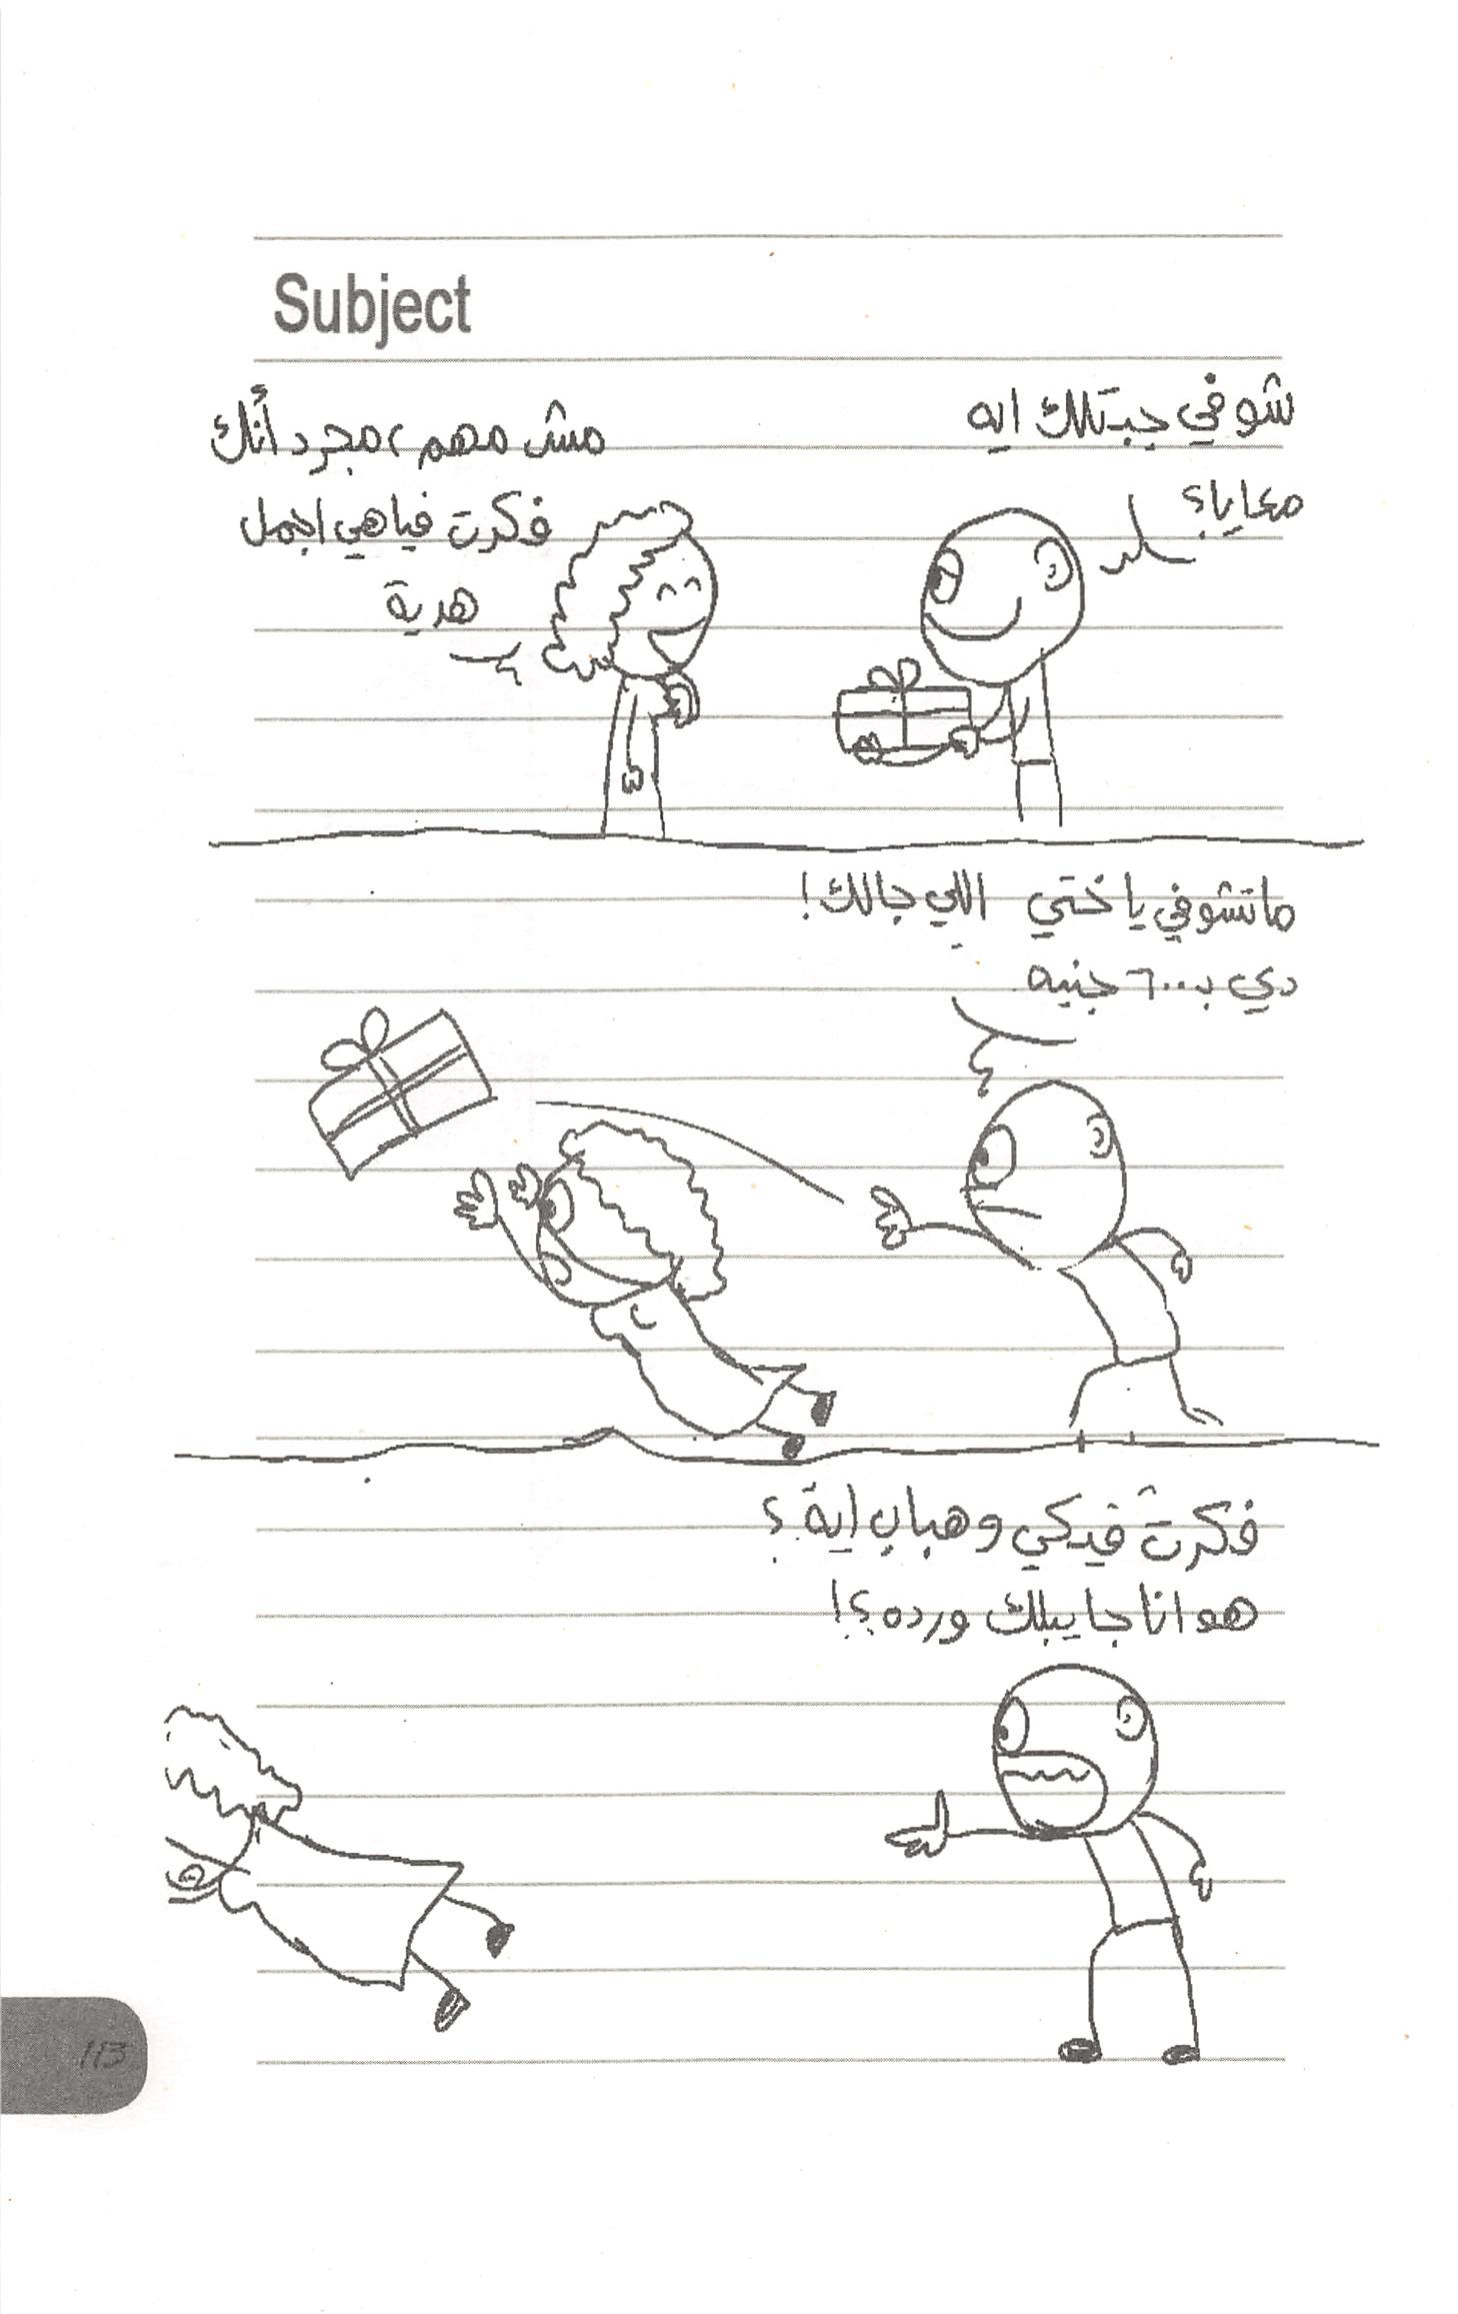 Subject
شوفي جبتلك ايه
معايا؟
مش مهم، مجرد أنك
فكرت فيا هي اجمل
هدية
ماتشوفي ياختي اللي جالك!
دي ب ٦٠٠ جنيه
فكرت فيكي وهباب اية؟
هو انا جايبلك ورده؟!
113